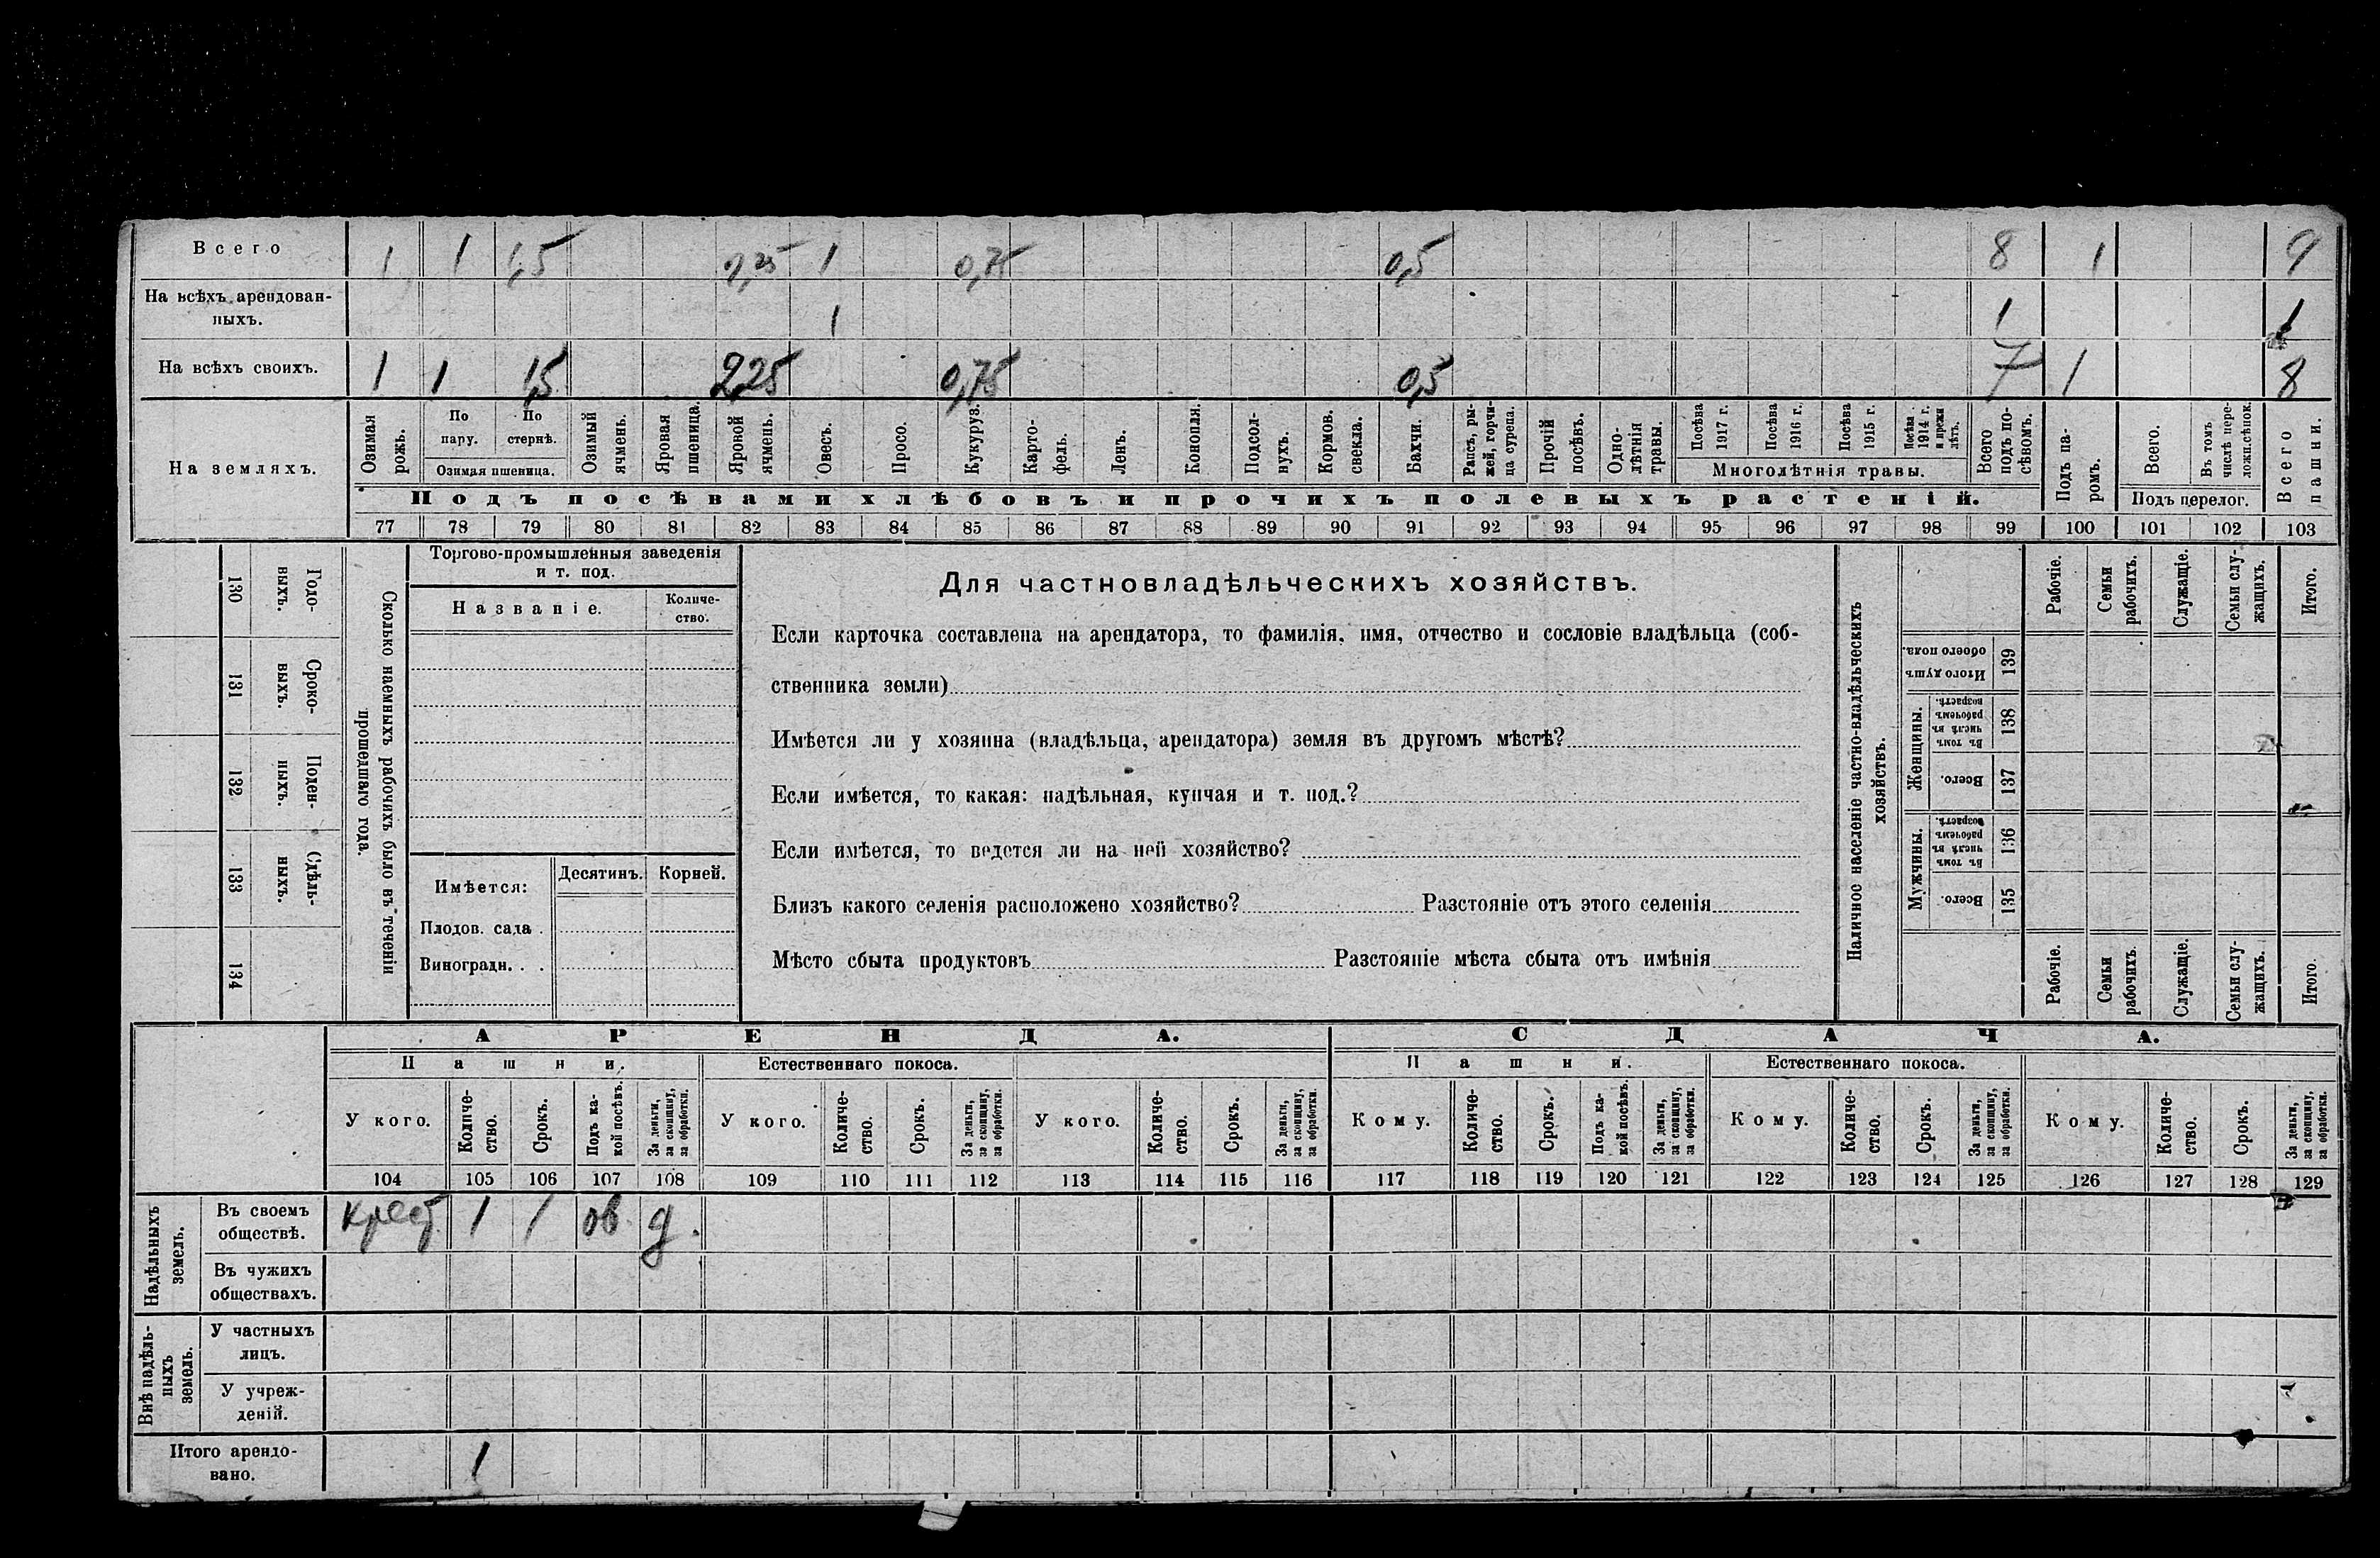 Всего 1 1 1,5 2,25 1 0,75 0,5 8 1 9
На всѣхъ арендован-
ныхъ. 1 1 1
На всѣхъ своихъ. 1 1 1,5 2,25 0,75 0,5 7 1 8
На земляхъ.
Озимая рожь.
По пару.
По стернѣ.
Озимая пшеница.
Озимый ячмень.
Яровая пшеница.
Яровой ячмень.
Овесъ.
Просо.
Кукуруз.
Карто-
фель.
Ленъ.
Конопля.
Подсол-
нухъ.
Кормов.
свекла.
Бахчи.
Рапсъ, ры-
жей, горчи-
ца сурепа.
Прочій
посѣвъ.
Одно-
лѣтнія
травы.
Посѣва
1917 г.
Посѣва
1916 г.
Посѣва
1915 г.
Посѣва
1914 г.
и прежн
лѣтъ.
Многолѣтнія травы.
Всего
подъ по-
сѣвомъ.
Подъ па-
ромъ.
Всего.
Въ томъ
числѣ пере-
ложн.сѣнок.
Подъ перелог.
Всего
пашни.
Подъ посѣвами хлѣбовъ и прочихъ полевыхъ растеній.
77 78 79 80 81 82 83 84 85 86 87 88 89 90 91 92 93 94 95 96 97 98 99 100 101 102 103
130
Годо-
выхъ.
131
Сроко-
выхъ.
132
Поден-
ныхъ.
133
Сдѣль-
ныхъ.
134
Сколько наемныхъ рабочихъ было въ теченіи
прошедшаго года.
Торгово-промышленныя заведенія
и т. под.
Названіе.
Количе-
ство.
Имѣется:
Десятинъ.
Корней.
Плодов. сада .
Виноградн. . .
Для частновладѣльческихъ хозяйствъ.
Если карточка составлена на арендатора, то фамилія, имя, отчество и сословіе владѣльца (соб-
ственника земли)
Имѣется ли у хозяина (владѣльца, арендатора) земля въ другомъ мѣстѣ?
Если имѣется, то какая: надѣльная, купчая и т. под.?
Если имѣется, то ведется ли на ней хозяйство?
Близъ какого селенія расположено хозяйство? Разстояніе отъ этого селенія
Мѣсто сбыта продуктовъ Разстояніе мѣста сбыта отъ имѣнія
Наличное населеніе частно-владѣльческихъ
хозяйствъ.
Рабочіе.
Семьи
рабочихъ.
Служащіе.
Семьи слу-
жащихъ.
Итого.
Итого душъ
обоего пола.
139
Женщины.
Въ томъ
числѣ въ
рабочемъ
возрастѣ.
138
Всего.
137
Мужчины.
Въ томъ
числѣ въ
рабочемъ
возрастѣ.
136
Всего.
135
Рабочіе.
Семьи
рабочихъ.
Служащіе.
Семьи слу-
жащихъ.
Итого.
АРЕНДА. СДАЧА.
Пашни. Естественнаго покоса. Пашни. Естественнаго покоса.
У кого.
Количе-
ство.
Срокъ.
Подъ ка-
кой посѣвъ.
За деньги,
за скопщину,
за обработки.
У кого.
Количе-
ство.
Срокъ.
За деньги,
за скопщину,
за обработки.
У кого.
Количе-
ство.
Срокъ.
За деньги,
за скопщину,
за обработки.
Кому.
Количе-
ство.
Срокъ.
Подъ ка-
кой посѣвъ.
За деньги,
за скопщину,
за обработки.
Кому.
Количе-
ство.
Срокъ.
За деньги,
за скопщину,
за обработки.
Кому.
Количе-
ство.
Срокъ.
За деньги,
за скопщину,
за обработки.
104 105 106 107 108 109 110 111 112 113 114 115 116 117 118 119 120 121 122 123 124 125 126 127 128 129
Надѣльныхъ
земель.
Въ своемъ
обществѣ. крест. 1 1 ов. д.
Въ чужихъ
обществахъ.
Внѣ надѣль-
ныхъ
земель.
У частныхъ
лицъ.
У учреж-
деній.
Итого арендо-
вано. 1